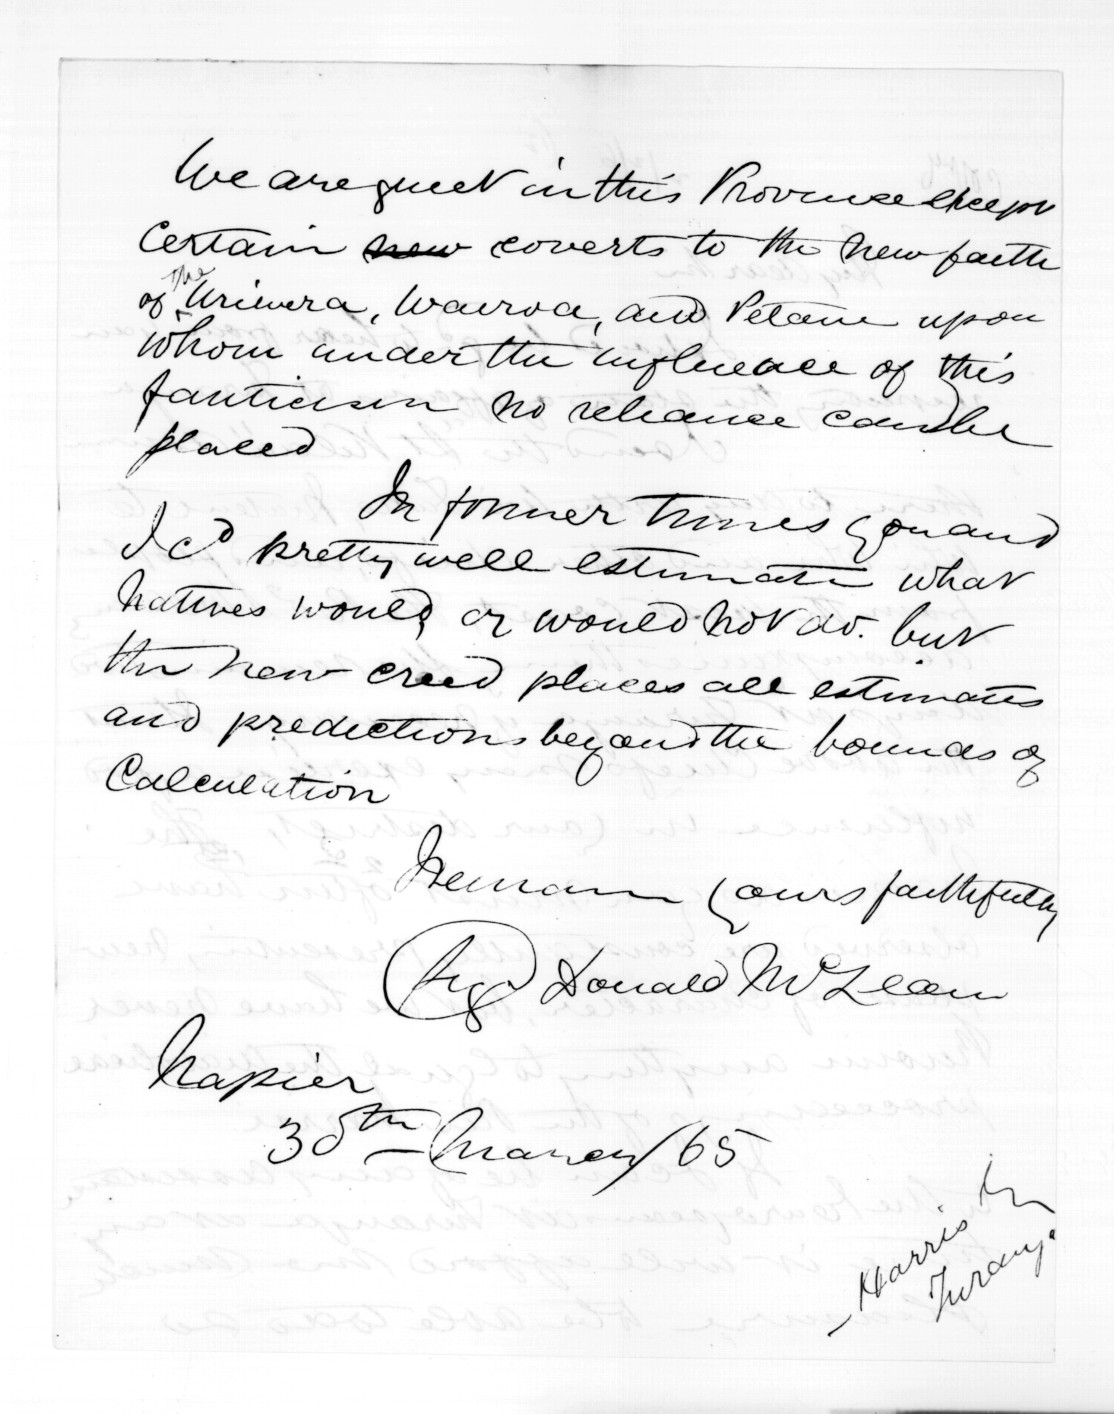 We are quiet in this Province except
Certain new coverts to the new faith
of the Uriwera, Wairoa, and Petane upon
whom under the influence of this
fanticism no reliance can be
placed
In former times you and
I cd pretty well estimate what
Natives would, or would not do. but
the new creed places all estimates
and predictions beyond the bounds of
Calculation
I remain yours faithfully
(Sigd) Donald McLean
Napier
30th March/65
Harris
Turang.